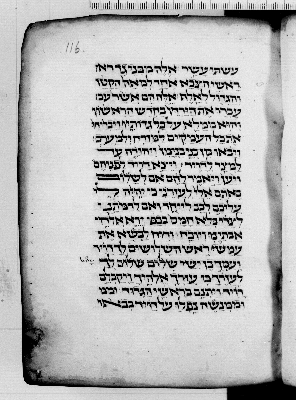 116
עשתי עשר אלה מבני גד ראשי
הצבא אחד למאה הקטן
והגדול לאלף אלה הם אשר
עברו את הירדן בחדש הראשון
והוא ממלא על כל גדותיו ויבריחו
את כל העמקים למזרח ולמערב
ויבאו מן בני בנימן ויהודה עד
למצד לדויד ויצא דויד לפניהם
ויען ויאמר להם אם לשלום
באתם אלי לעזרני יהיה לי
עליכם לבב ליחד ואם לרמותני
לצרי בלא חמס בכפי ירא אלהי
אבותינו ויוכח ורוח לבשה את
עמשי ראש השלישים לך דויד
ועמך בן ישי שלום שלום לך
לעזרך כי עזרך אלהיך ויקבלם
דויד ויתנם בראשי הגדוד
וממנשה נפלו על דויד בבאו